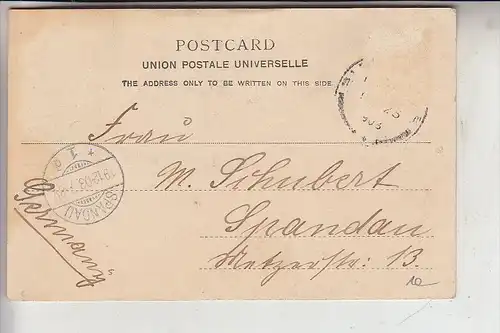 POSTCARD
UNION POSTALE UNIVERSELLE
THE ADDRESS ONLY TO BE WRITTEN ON THIS SIDE.
Frau
M. Schubert
Spandau
Metzerstr: 13.
Germany
SPANDAU